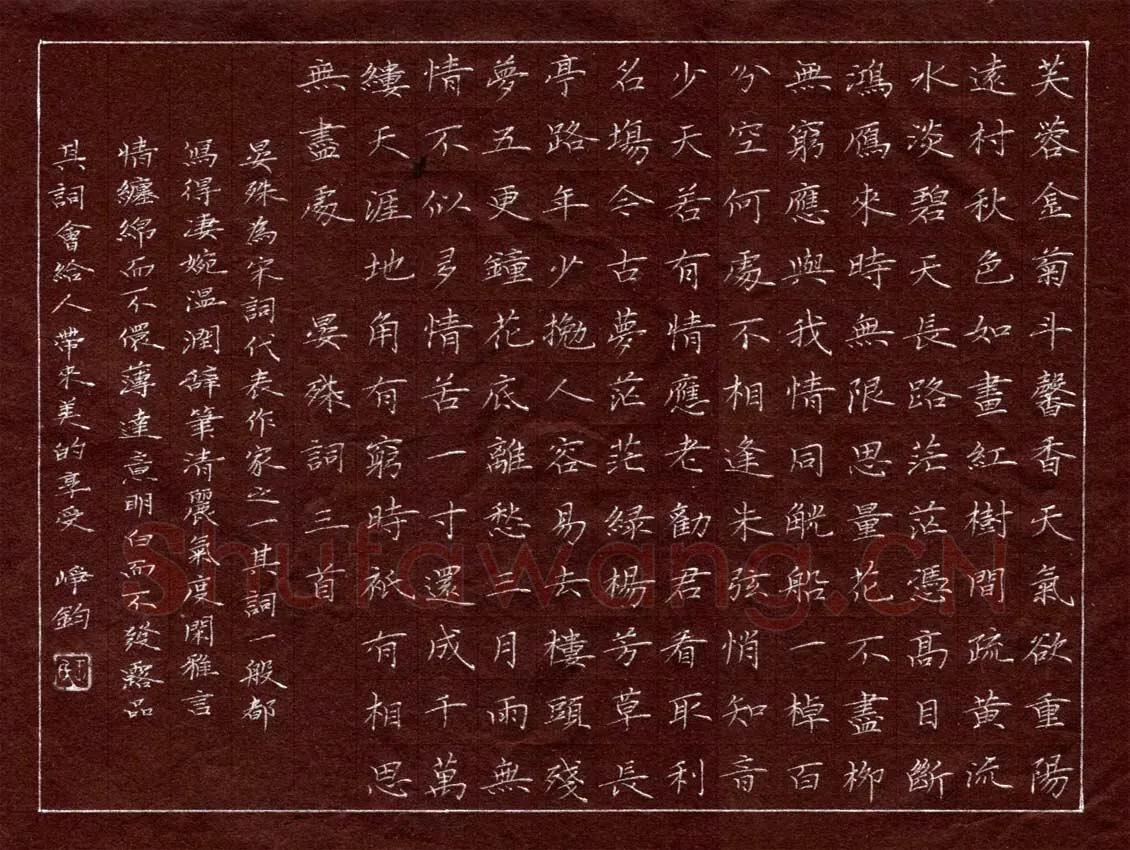 芙蓉金菊斗馨香天氣欲重陽
遠村秋色如畫紅樹間疏黃流
水淡碧天長路茫茫憑髙目斷
鴻鴈來時無限思量花不盡柳
無窮應與我情同觥船一棹百
分空何處不相逢朱弦悄知音
少天若有情應老勸君看取利
名場今古夢茫茫綠楊芳草長
亭路年少拋人容易去樓頭殘
夢五更鐘花底離愁三月雨無
情不似多情苦一寸還成千萬
縷天涯地角有窮時祇有相思
無盡處 晏殊詞三首
晏殊為宋詞代表作家之一其詞一般都
寫得凄婉温潤辭筆清麗氣度閑雅言
情纏綿而不儇薄達意明白而不發露品
其詞會給人帶來美的享受 崢鈞
Shufawang.CN